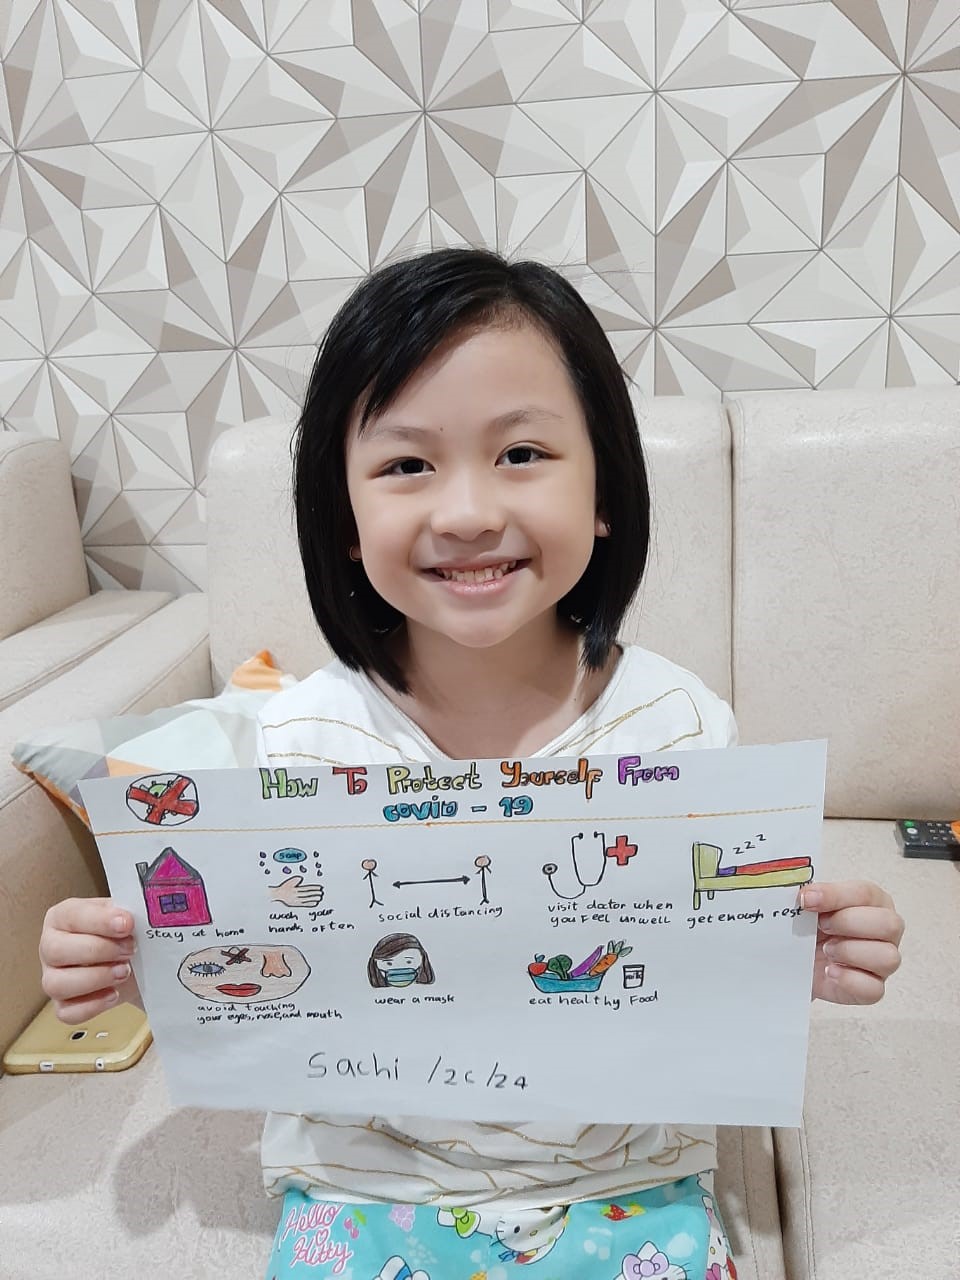 How To Protect Yourself From
covid - 19
soap
zzz
stay at home
wash your
hands often
social distancing
visit doctor when
you feel unwell
get enough rest
avoid touching
your eyes, nose, and mouth
wear a mask
milk
eat healthy Food
Sachi /2c/24
Hello
Kitty